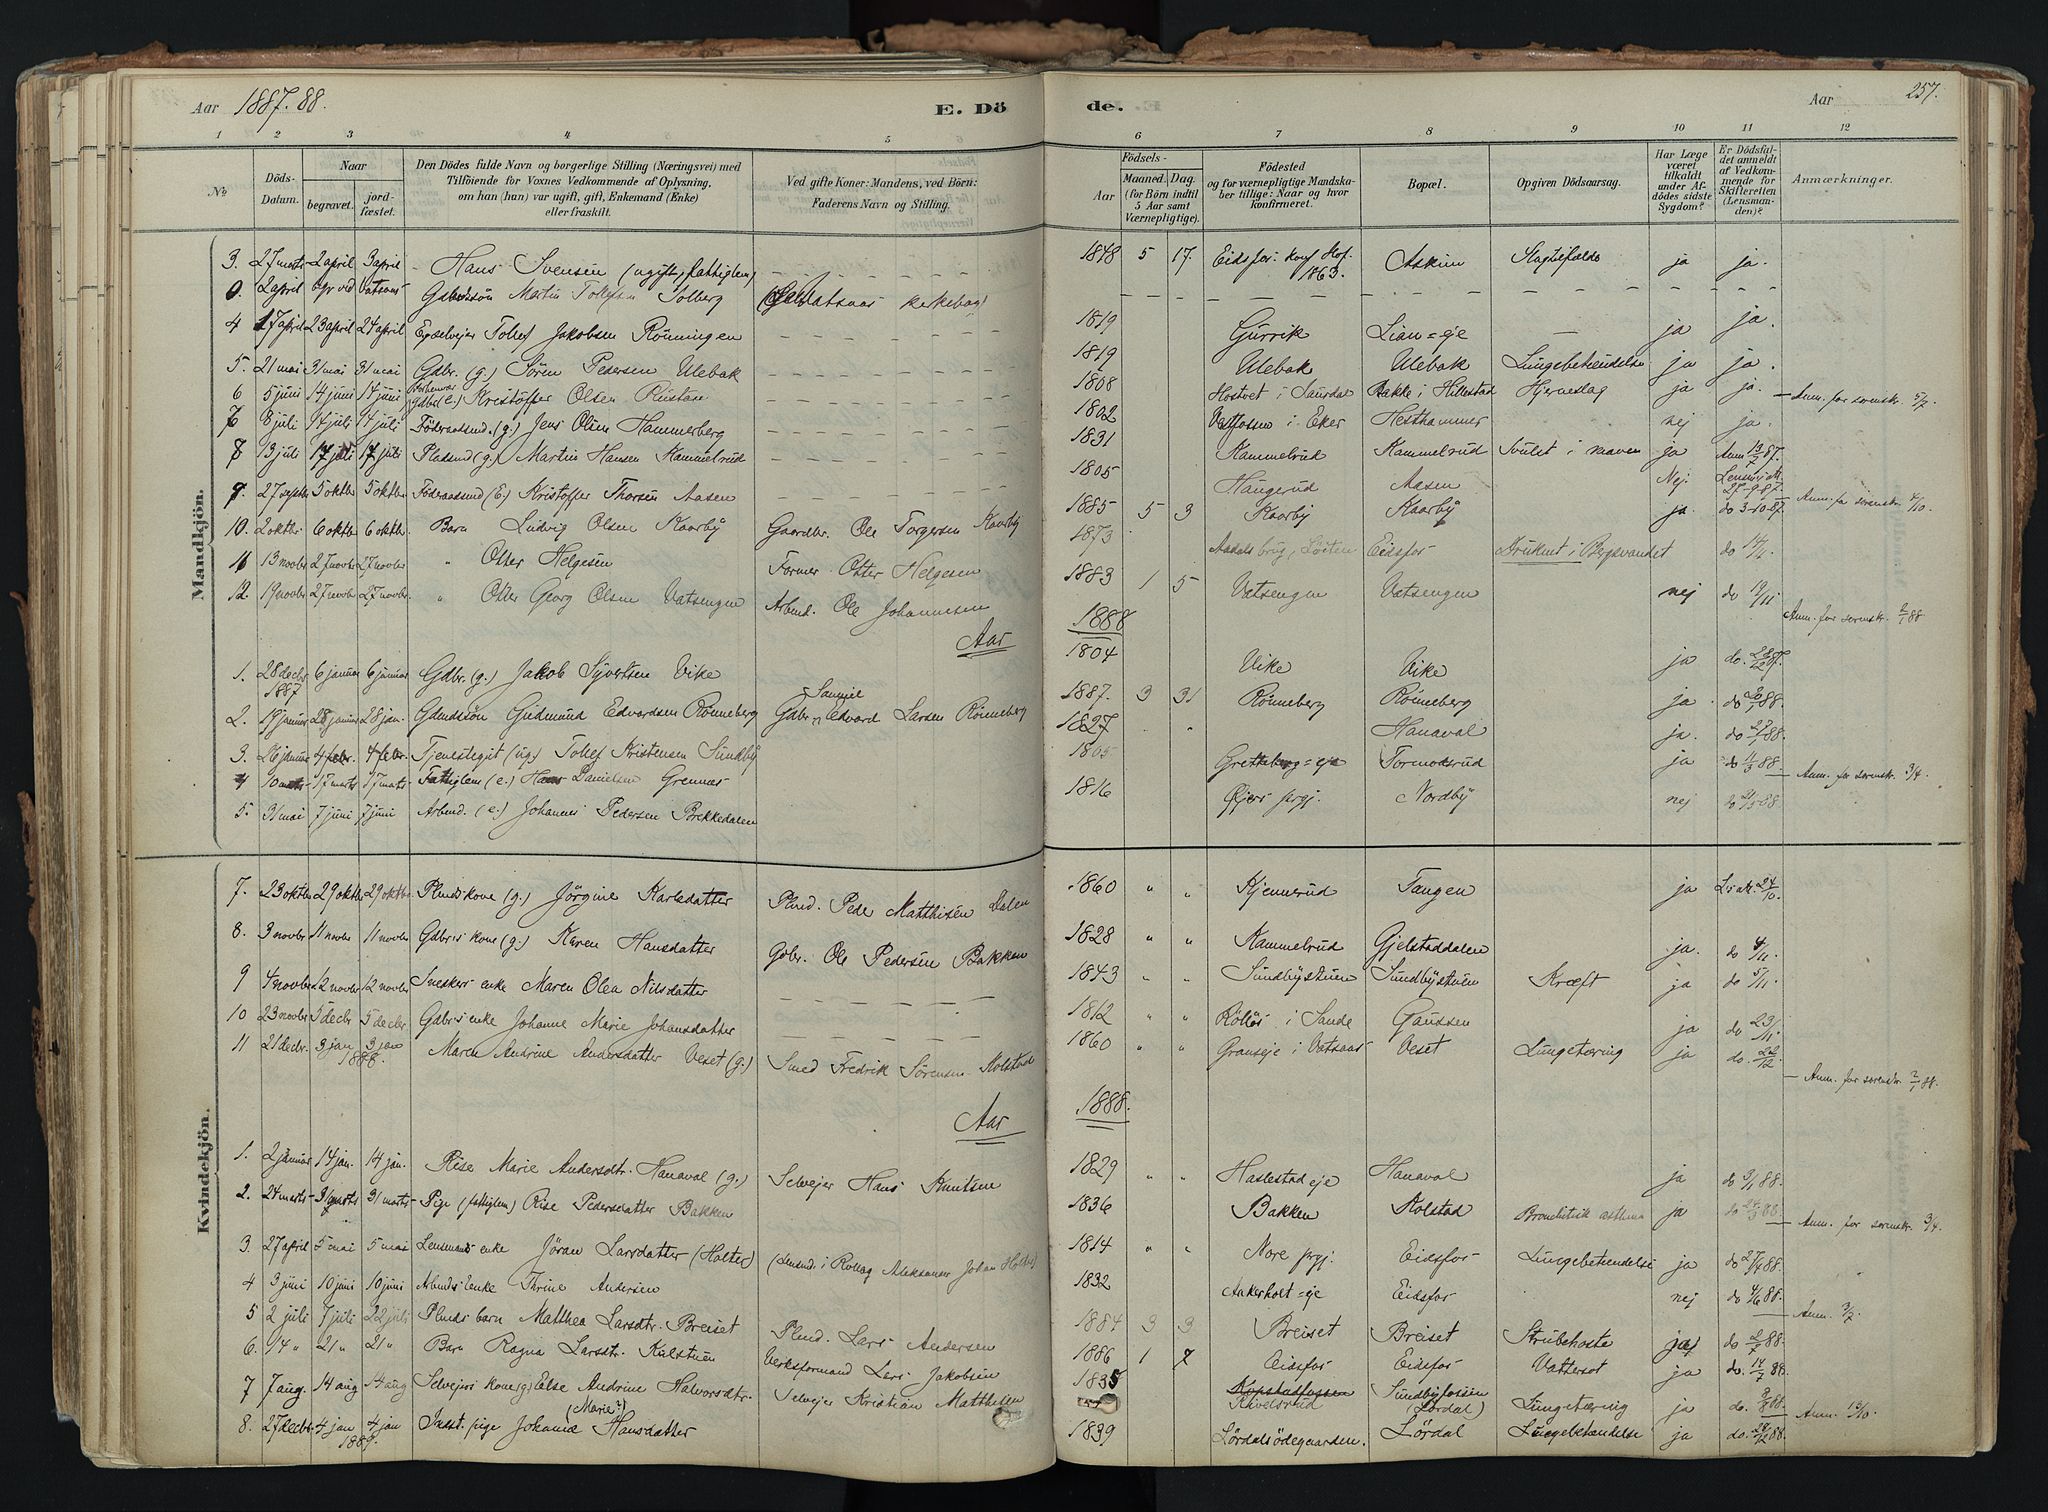 Aar 1887. 88. E. Dö de. Aar 257.
1 2 3 4 5 6 7 8 9 10 11 12
No Döds-Datum. Naar begravet. jordfæstet. Den Dödes fulde Navn og borgerlige Stilling (Næringsvei) med Tilföiende for Voxnes Vedkommende af Oplysning, om han (hun) var ugift, gift, Enkemand (Enke) eller fraskilt. Ved gifte Koner: Mandens, ved Börn: Faderens Navn og Stilling. Födsels- Aar Maaned. Dag. (for Börn indtil 5 Aar samt Værnepligtige). Födested og for værnepligtige Mandskaber tillige: Naar og hvor konfirmeret. Bopæl. Opgiven Dödsaarsag. Har Læge været tilkaldt under Afdödes sidste Sygdom? Er Dödsfaldet anmeldt af Vedkommende for Skifteretten (Lensmanden)? Anmærkninger.
Mandkjön.
3. 27 marts 2 april 3 april Hans Svensen (ugift, fattiglem) 1848 5 17. Eidsfos: konf. Hof. 1863. Askim ja ja.
0. 2 april Martin Solberg
4 17 april 23 april 24 april Tollef Jakobsen Rönningen 1819 Gurrik Lian=eje ja ja.
5. 21 mai 31 mai 31 mai Gdbr. (g.) Sören Pedersen Ulebak 1819 Ulebak Ulebak Lungebetændelse ja ja.
6 5 juni 14 juni 14 juni Gdbr (e.) Kristoffer Olsen Rustan 1808 Hostvet i Sandsdal Bakke i Hillestad Hjerneslag ja ja. Anm. for sorenskr. 5/7
7 8 juli 14 juli 14 juli Föderaadsmd. (g.) Jens Olsen Hammerberg 1802 Vestfossen i Eker Hesthammer nej ja.
8 13 juli 17 juli 17 juli Pladsmd (g.) Martin Hansen Kammelrud 1831 Kammelrud Kammelrud Svulst i maven ja Anm 13/7 87.
9. 27 septbr 5 oktbr 5 oktbr. Föderaadsmd (E.) Kristoffer Thorsen Aasen 1805 Haugerud Aasen Nej. 27-9-87. Anm. for sorenskr. 4/10
10. 2 oktbr. 6 oktbr 6 oktbr. Barn Ludvig Olsen Kaarby Gaardbr. Ole Torgersen Kaarby 1885 5 3 Kaarby Kaarby ja do 3-10-87.
11 13 novbr 27 novbr 27 novbr " Otter Helgesen Former Otter Helgesen 1873 Aadals brug, Löiten Eidsfos Druknet i Bergsvandet do 14/11.
12. 19 novbr 27 novbr 27 novbr. " Otter Georg Olsen Vatsengen Arbmd. Ole Johannesen 1883 1 5 Vatsengen Vatsengen nej do 19/11 Anm. for sorenskr. 2/1 88
Aar 1888
1. 28 decbr 1887 6 januar 6 januar Gdbr. (g.) Jakob Syvertsen Vike 1804 Vike Vike ja do. 28/12 87.
2. 19 januar 28 januar 28 jan. Gdmdssön Gudmund Edvardsen Rönneberg Gdbr. Samuel Edvard Larsen Rönneberg 1887. 3 31 Rönneberg Rönneberg ja. do 20/1 88.
3. 26 januar 4 febr. 4 febr. Tjenestegut (ug.) Tollef Kristensen Sundby 1827 " Hanaval ja. do 27/1 88.
4 10 marts 17 marts 17 marts Fattiglem (e.) Hans Danielsen Grennes 1805 Gretteberg=eje Tormodsrud ja do 1/3 88 Anm. for sorenskr. 3/4.
5. 31 mai 7 juni 7 juni Arbmd. (e.) Johannes Pedersen Brekkedalen 1816 Öiers prgj. Nordby nej
Kvindekjön.
7. 23 oktbr 29 oktbr 29 oktbr. Plmdskone (g.) Jörgine Karlsdatter Plmd. Peder Matthisen Dalen 1860 " " Kjennerud Tangen ja 24/10.
8. 3 novbr 11 novbr 11 novbr Gdbr's kone (g.) Karen Hansdatter Gdbr. Ole Pedersen Bakken 1828 " " Kammelrud Gjelstaddalen ja. do 4/11
9 4 novbr 12 novbr 12 novbr Snedkers enke Maren Olea Nilsdatter 1843 " " Sundbystuen Sundbystuen Kræft ja do 5/11.
10 23 novbr 5 decbr 5 decbr Gdbr's enke Johanne Marie Johansdatter 1812 " " i Sande Gaussen ja do 23/11.
11 21 decbr. 3 jan 1888. 3 jan Maren Andrine Andersdatter Veset (g.) Smed Fredrik Sörensen Molstad 1860 " " Granseje i Vatsaas Veset Lungetæring ja do. 22/12 Anm. for sorenskr. 2/1 88.
Aar 1888.
1. 2 januar 14 jan. 14 jan. Rise Marie Andersdtr. Hanaval (g.) Selvejer Hans Knutsen 1829 " " Haslestadeje Hanaval ja do 3/1 88.
2. 24 marts 31 marts 31 marts Pige (fattiglem) Rise Pedersdatter Bakken 1836 Bakken Kolstad Bronchitisk asthma ja do 24/3 88. Anm. for sorenskr. 3/4.
3. 27 april 5 mai 5 mai Lensmands enke Jöran Larsdatter (Holter) (Lensmd. i Rollag Aleksander Johan Holter) 1814 " " Nore prgj: Eidsfos Lungebetændelse ja do 27/4 88.
4 3 juni 10 juni 10 juni Arbmds enke Thrine Andersen 1832 Aakerholt=eje Eidsfos nej do 4/6 88.
5 2 juli 7 juli 22 juli Plmds barn Matthea Larsdtr. Breiset Plmd. Lars Andersen 1884 3 3 Breiset Breiset Strubehoste do 2/7 88. Anm. 3/7.
6. 14 " 21 " 21 " Barn Ragna Larsdtr. Kulstuen Verksformand Lars Jakobsen 1886 1 7 Eidsfos Eidsfos Vattersot ja do. 14/7 88.
7 7 aug. 14 aug 14 aug Selvejers kone (g) Else Andrine Halvorsdtr. Selvejer Kristian Matthisen 1835 Kopstadfossen Kivelsrud Sundbyfossen (Lördal) Lungetæring ja do. 8/8 88. Anm. 15/10.
8. 27 decbr. 4 jan 1889. 4 jan pige Johanne (Marie?) Hansdatter 1839 Lördalsödegaarden. Lördal Lungebetændelse ja do. 28/12 88.